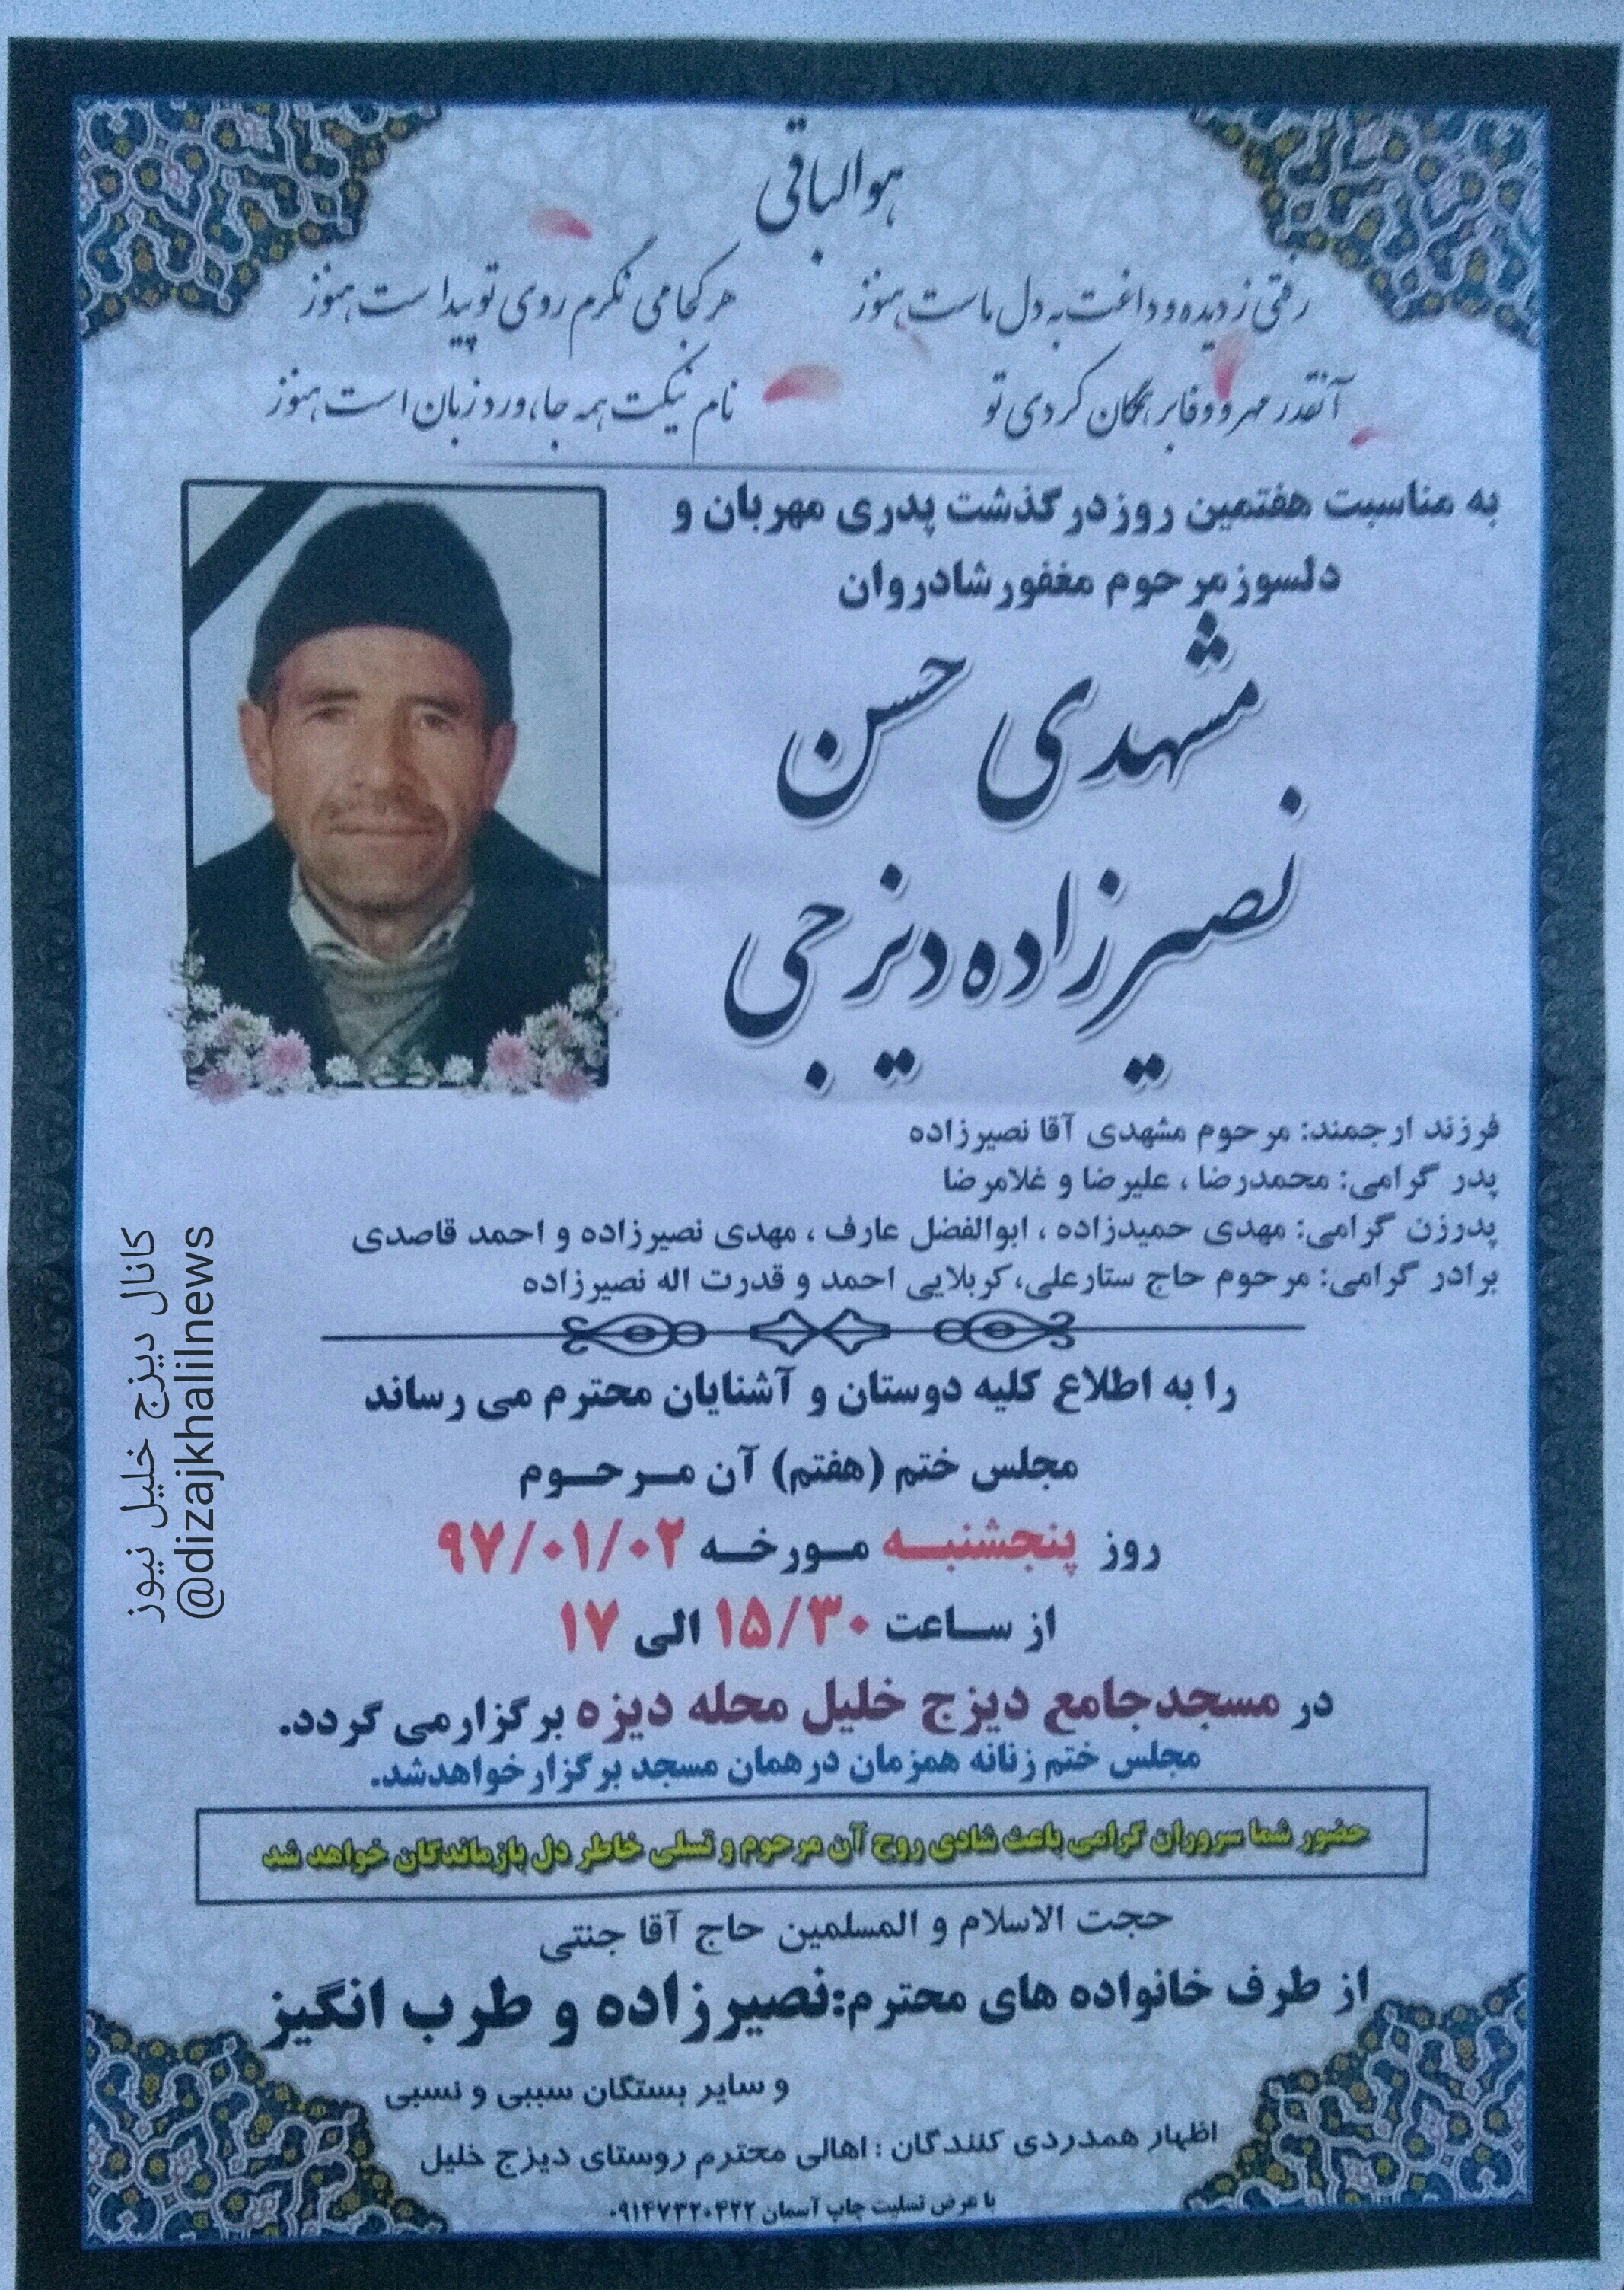 هوالباقی
رفتی ز دیده و داغت به دل ماست هنوز
هر کجا می نگرم روی تو پیدا ست هنوز
آنقدر مهر و وفا بر همگان کردی تو
نام نیکت همه جا ورد زبان است هنوز
به مناسبت هفتمین روز درگذشت پدری مهربان و
دلسوز مرحوم مغفور شادروان
مشهدی حسن
نصیرزاده دیزجی
فرزند ارجمند: مرحوم مشهدی آقا نصیرزاده
پدر گرامی: محمدرضا ، علیرضا و غلامرضا
پدرزن گرامی: مهدی حمیدزاده ، ابوالفضل عارف ، مهدی نصیرزاده و احمد قاصدی
برادر گرامی: مرحوم حاج ستارعلی، کربلایی احمد و قدرت اله نصیرزاده
را به اطلاع کلیه دوستان و آشنایان محترم می رساند
مجلس ختم (هفتم) آن مرحوم
روز پنجشنبه مورخه ۹۷/۰۱/۰۲
از ساعت ۱۵/۳۰ الی ۱۷
در مسجد جامع دیزج خلیل محله دیزه برگزار می گردد.
مجلس ختم زنانه همزمان در همان مسجد برگزار خواهد شد.
حضور شما سروران گرامی باعث شادی روح آن مرحوم و تسلی خاطر دل بازماندگان خواهد شد
حجت الاسلام و المسلمین حاج آقا جنتی
از طرف خانواده های محترم: نصیرزاده و طرب انگیز
و سایر بستگان سببی و نسبی
اظهار همدردی کنندگان : اهالی محترم روستای دیزج خلیل
با عرض تسلیت چاپ آسمان ۰۹۱۴۷۳۲۰۴۲۲
کانال دیزج خلیل نیوز
@dizajkhalilnews